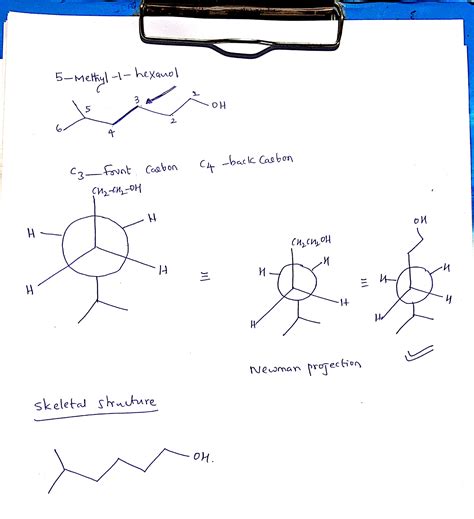 5-Methyl-1-hexanol
5 3 1 OH
6 4 2
C3 - Fount Carbon C4 - back Carbon
CH2-CH2-OH
H H
H H
≡
CH2CH2OH
H H
H H
≡
OH
H H
H H
Newman projection
Skeletal structure
OH.